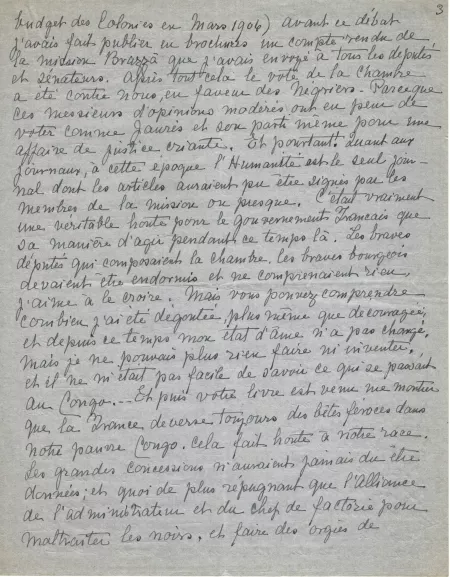 3
budget des Colonies en Mars 1906) Avant ce débat
j'avais fait publier en brochures un compte rendu de
la mission Brazza que j'avais envoyé à tous les députés
et sénateurs. Après tout cela le vote de la Chambre
a été contre nous, en faveur des Négriers. Parceque
ces messieurs d'opinions modérés ont eu peur de
voter comme Jaurès et son parti même pour une
affaire de justice criante. Et pourtant. Quant aux
journaux, à cette époque l'Humanité est le seul jour-
nal dont les articles auraient pu être signés par les
membres de la mission ou presque. C'était vraiment
une véritable honte pour le gouvernement Français que
sa manière d'agir pendant ce temps là. Les braves
députés qui composaient la chambre, les braves bourgeois
devaient être endormis et ne comprenaient rien,
j'aime à le croire. Mais vous pouvez comprendre
combien j'ai été dégoutée, plus même que découragée,
et depuis ce temps mon état d'âme n'a pas changé.
Mais je ne pouvais plus rien faire ni inventer.
et il ne m'était pas facile de savoir ce qui se passait
au Congo... Et puis votre livre est venu me montrer
que la France déverse toujours des bêtes féroces dans
notre pauvre Congo. Cela fait honte à notre race.
Les grandes concessions n'auraient jamais du être
données; et quoi de plus répugnant que l'alliance
de l'administrateur et du chef de factorie pour
maltraiter les noirs, et faire des orgies de